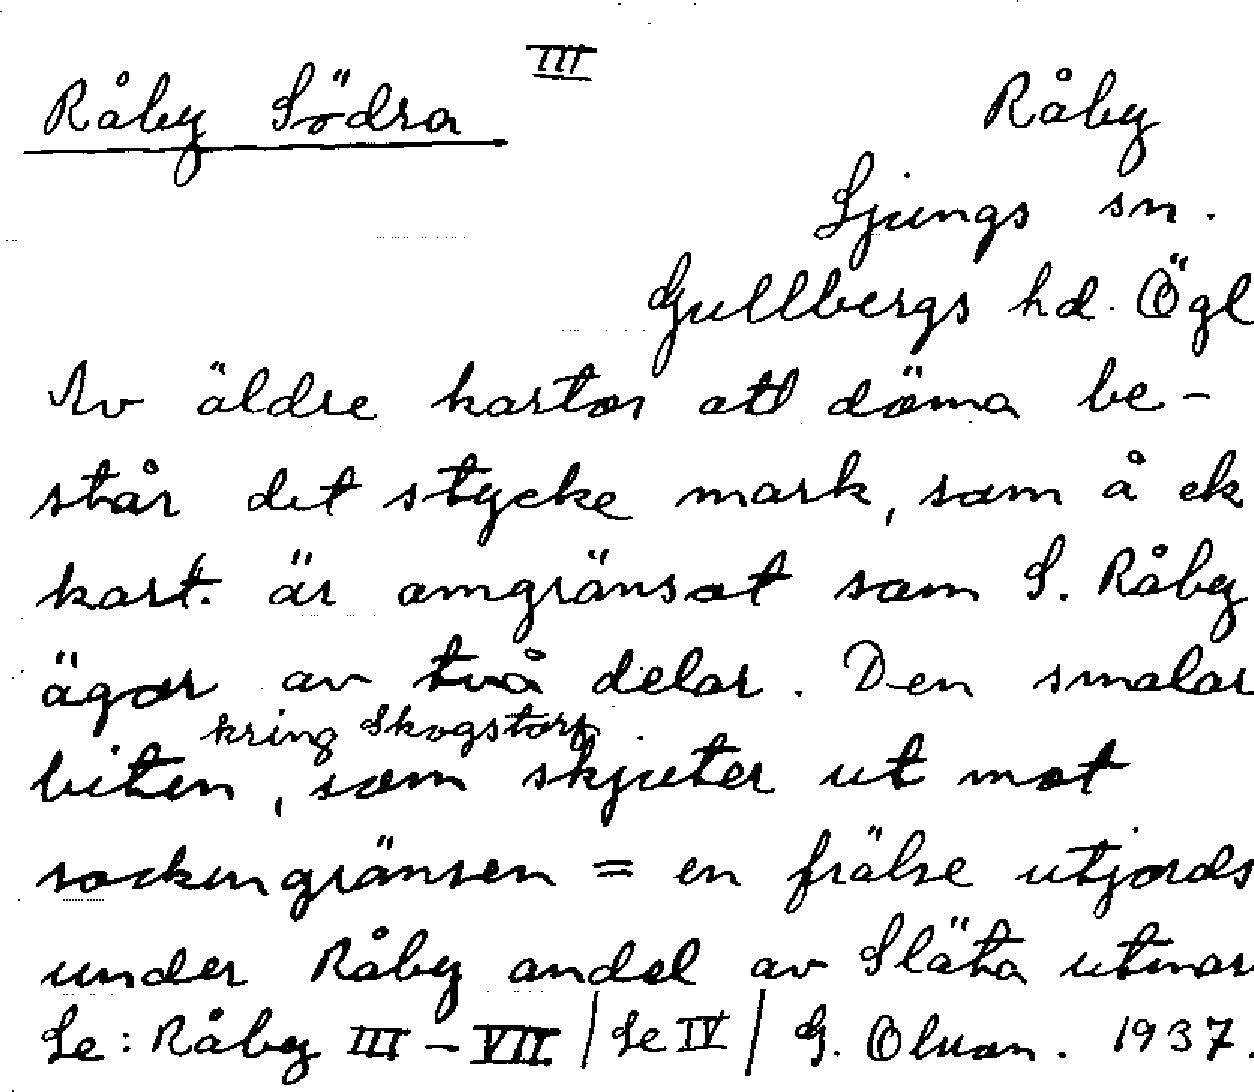 III
Råby Södra
Råby
Ljungs sn.
Gullbergs hd. Ögl
Av äldre kartor att döma be-
står det stycke mark, som å ek
kart. är omgränsat som S. Råby
ägor av två delar. Den smalar
kring Skogstorp
biten, som skjuter ut mot
sockengränsen = en frälse utjords
under Råby andel av Släta utmar
Se: Råby III - VII / Se IV / G. Olsson. 1937.